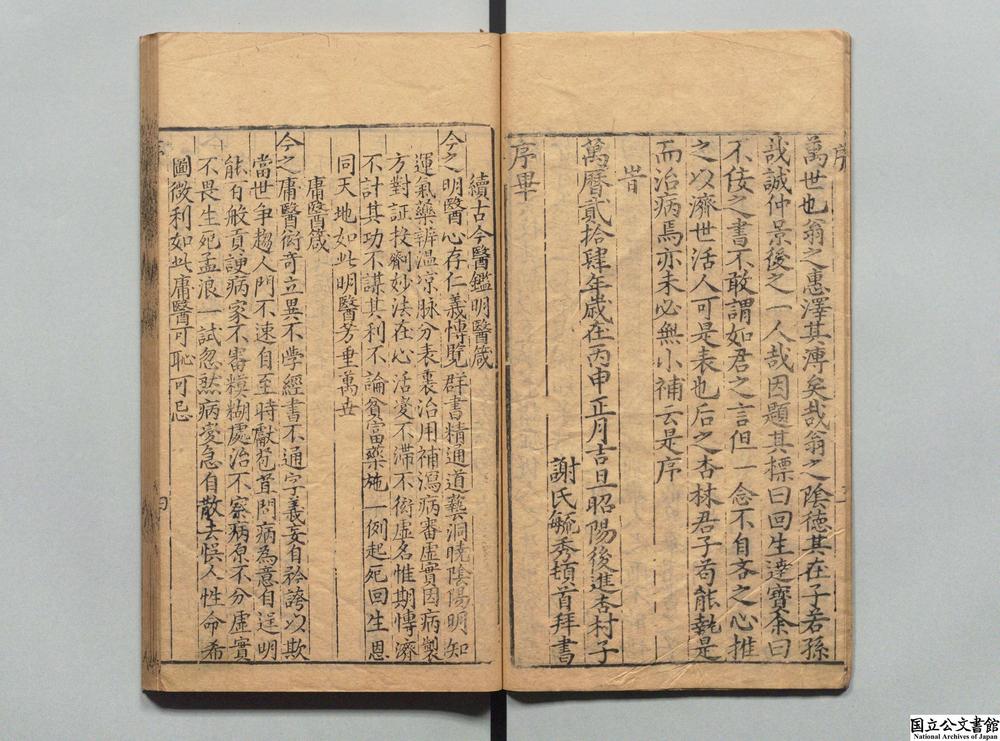 萬世也翁之惠澤其溥矣哉翁之陰德其在子若孫
哉誠仲景後之一人哉因題其標曰回生達寶余曰
不佞之書不敢謂如君之言但一念不自吝之心推
之以濟世活人可是表也后之杏林君子苟能執是
而治病焉亦未必無小補云是序
旹
萬曆貳拾肆年歲在丙申正月吉旦昭陽後進杏村子
謝氏毓秀頓首拜書
序畢
續古今醫鑑明醫箴
今之明醫心存仁義博覽群書精通道藝洞曉陰陽明知
運氣藥辨温凉脉分表裏治用補瀉病審虛實因病製
方對証投劑妙法在心活變不滯不衒虛名惟期博濟
不計其功不謀其利不論貧富藥施一例起死回生恩
同天地如此明醫芳垂萬世
庸醫箴
今之庸醫衒奇立異不學經書不通字義妄自矜誇以欺
當世爭趨人門不速自至時獻苞苴問病為意自逞明
能百般貢諛病家不審糢糊處治不察病原不分虛實
不畏生死孟浪一試忽然病變急自散去悞人性命希
圖微利如此庸醫可恥可忌
四
国立公文書館
National Archives of Japan